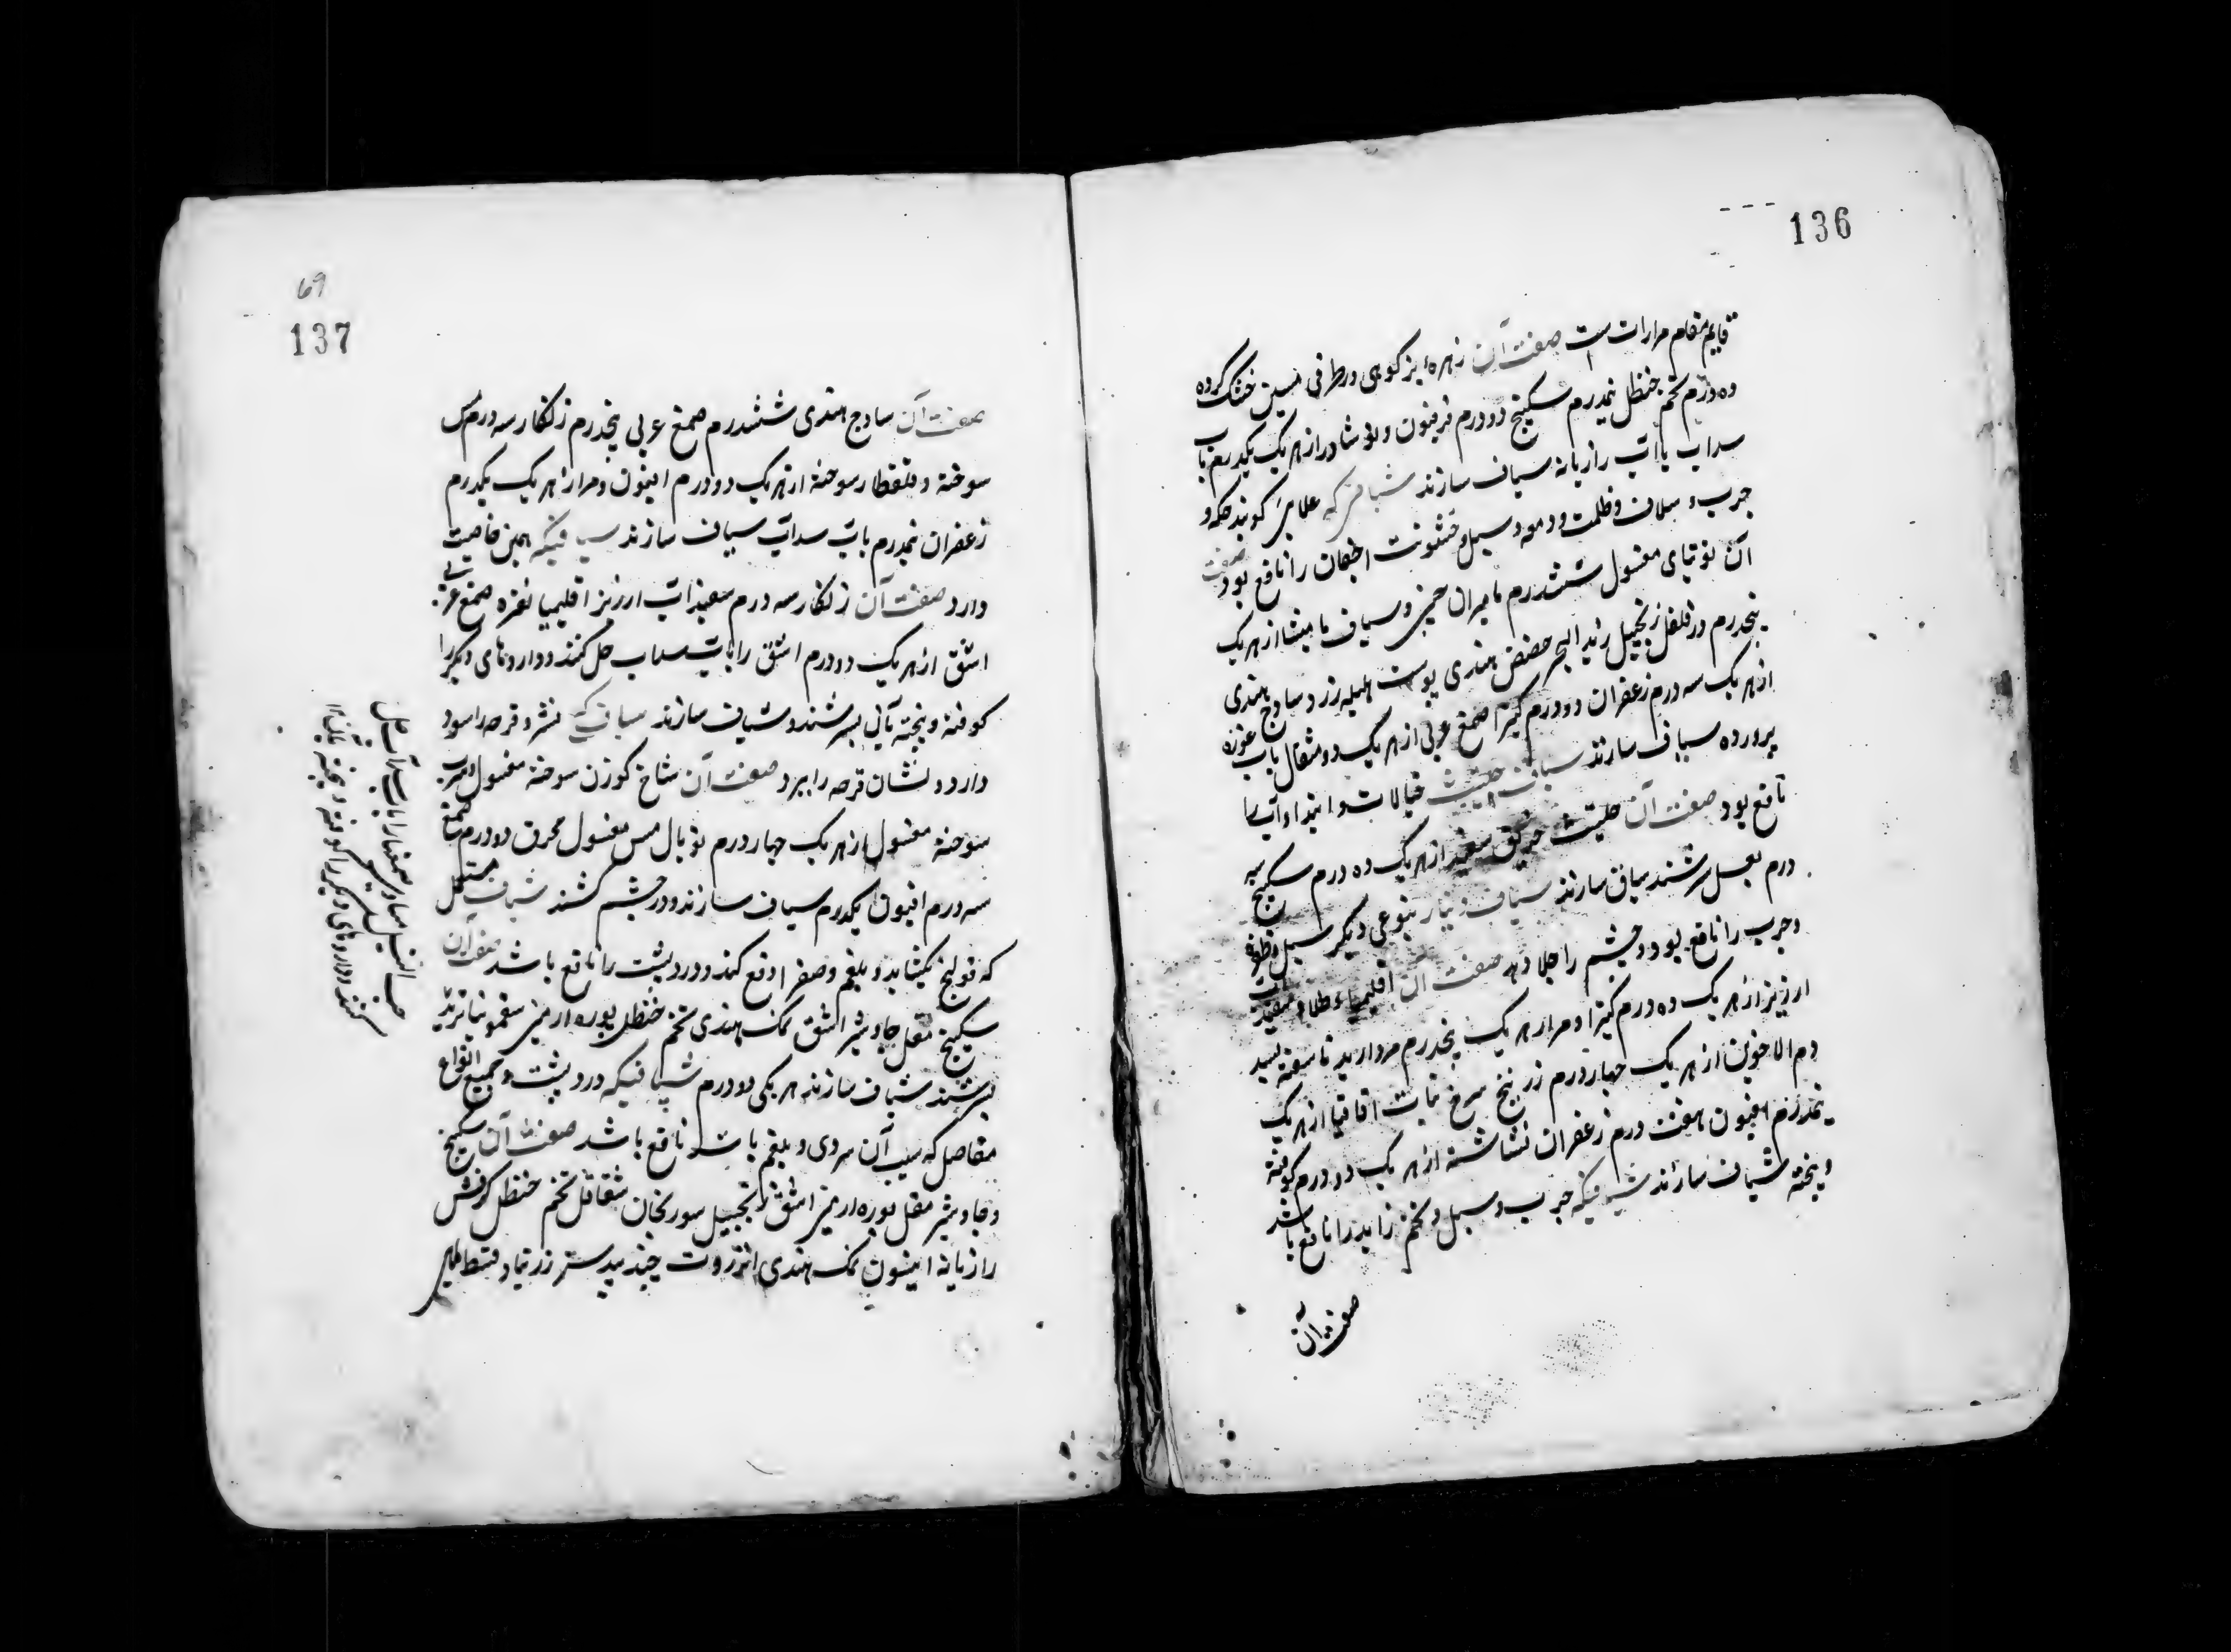 136
قایم مقام مرارات است صفت آن زهره بز کوهی در ظرفی مسین خشک کرده
ده درم تخم حنظل نیمدرم سکبینج دو درم فرفیون و نوشادر از هر یک یکدرم باب
سداب یا آب رازیانه شیاف سازند شیافی که علایی گویند حکه و
جرب و سلاق و ظلمت و دمعه و سبل و خشونت اجفان را نافع بود صفت
آن توتیای مغسول ششدرم مامیران چینی و شیاف مامیثا از هر یک
پنجدرم دارفلفل زنجبیل زبد البحر حضض هندی پوست هلیله زرد ساذج هندی
از هر یک سه درم زعفران دو درم کتیرا صمغ عربی از هر یک دو مثقال باب غوره
پرورده شیاف سازند شیاف حلتیت خیالات و ابتداء آب را
نافع بود صفت آن حلتیت خربق سفید از هر یک ده درم سکبینج سه
درم بعسل سرشند شیاف سازند شیاف دینار بنوعی دیگر سبل و ظفره
و جرب را نافع بود و چشم را جلا دهد صفت آن اقلیمیاء طلا و سفید آب
ارزیز از هر یک ده درم کتیرا و مر از هر یک پنجدرم مروارید ناسفته بسد
دم الاخوین از هر یک چهار درم زرنیخ سرخ نبات اقاقیا از هر یک
نیمدرم افیون هفت درم زعفران نشاسته از هر یک دو درم کوفته
و پخته شیاف سازند شیافیکه جرب و سبل و لحم زاید را نافع باشد
صفت آن
69
137
صفت آن ساذج هندی ششدرم صمغ عربی پنجدرم زنگار سه درم مس
سوخته و قلقطار سوخته از هر یک دو درم افیون و مر از هر یک یکدرم
زعفران نیمدرم باب سداب شیاف سازند شیافیکه همین خاصیت
دارد صفت آن زنگار سه درم سفیداب ارزیز اقلیمیا نقره صمغ عربی
اشق از هر یک دو درم اشق را باب سداب حل کنند و داروهای دیگر را
کوفته و پخته بآن بسرشند و شیاف سازند شیافی که نشر و قرحه را سود
دارد و نشان قرحه را ببرد صفت آن شاخ گوزن سوخته مغسول و سرب
سوخته مغسول از هر یک چهار درم توبال مس مغسول محرق دو درم صمغ
سه درم افیون یکدرم شیاف سازند و در چشم کشند شیاف مسهل
که قولنج بگشاید و بلغم و صفرا دفع کند و درد پشت را نافع باشد صفت آن
سکبینج مقل جاوشیر اشق نمک هندی تخم حنظل بوره ارمنی سقمونیا تربد
بسرشند شیاف سازند هر یکی دو درم شیافیکه درد پشت و جمیع انواع
مفاصل که سبب آن سردی و بلغم باشد نافع باشد صفت آن سکبینج
و جاوشیر مقل بوره ارمنی اشق زنجبیل سورنجان شقاقل تخم حنظل کرفس
رازیانه انیسون نمک هندی انزروت جند بیدستر زرنباد قسط
حب النیل مساوی صمغها را باب سداب حل
کنند و داروهای دیگر را کوفته و پخته بآن